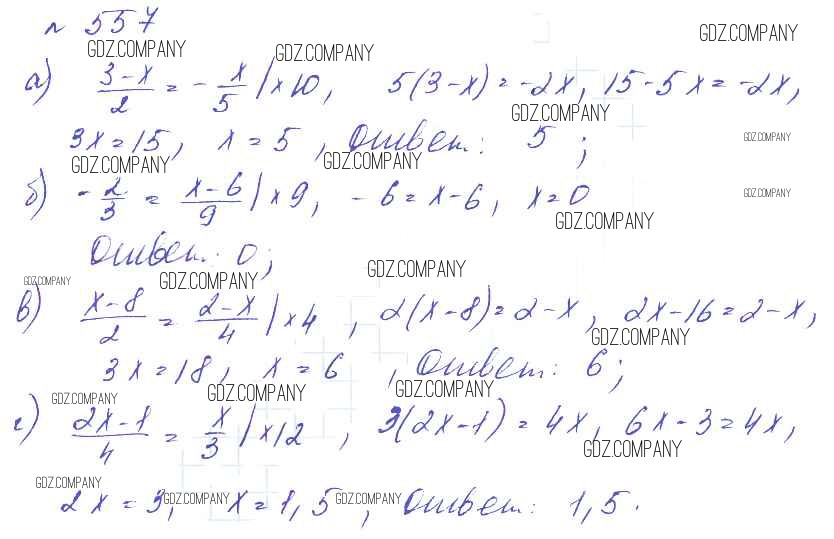 № 557
GDZ.COMPANY GDZ.COMPANY GDZ.COMPANY
а) (3-x)/2 = -x/5 | ×10, 5(3-x) = -2x, 15-5x = -2x,
GDZ.COMPANY
3x = 15, x = 5, Ответ: 5;
GDZ.COMPANY
GDZ.COMPANY GDZ.COMPANY
б) -2/3 = (x-6)/9 | ×9, -6 = x-6, x = 0
GDZ.COMPANY
GDZ.COMPANY
Ответ: 0;
GDZ.COMPANY GDZ.COMPANY GDZ.COMPANY
в) (x-8)/2 = (2-x)/4 | ×4, 2(x-8) = 2-x, 2x-16 = 2-x,
GDZ.COMPANY
3x = 18, x = 6, Ответ: 6;
GDZ.COMPANY GDZ.COMPANY GDZ.COMPANY
г) (2x-1)/4 = x/3 | ×12, 3(2x-1) = 4x, 6x-3 = 4x,
GDZ.COMPANY
GDZ.COMPANY
2x = 3, GDZ.COMPANY x = 1,5 GDZ.COMPANY, Ответ: 1,5.